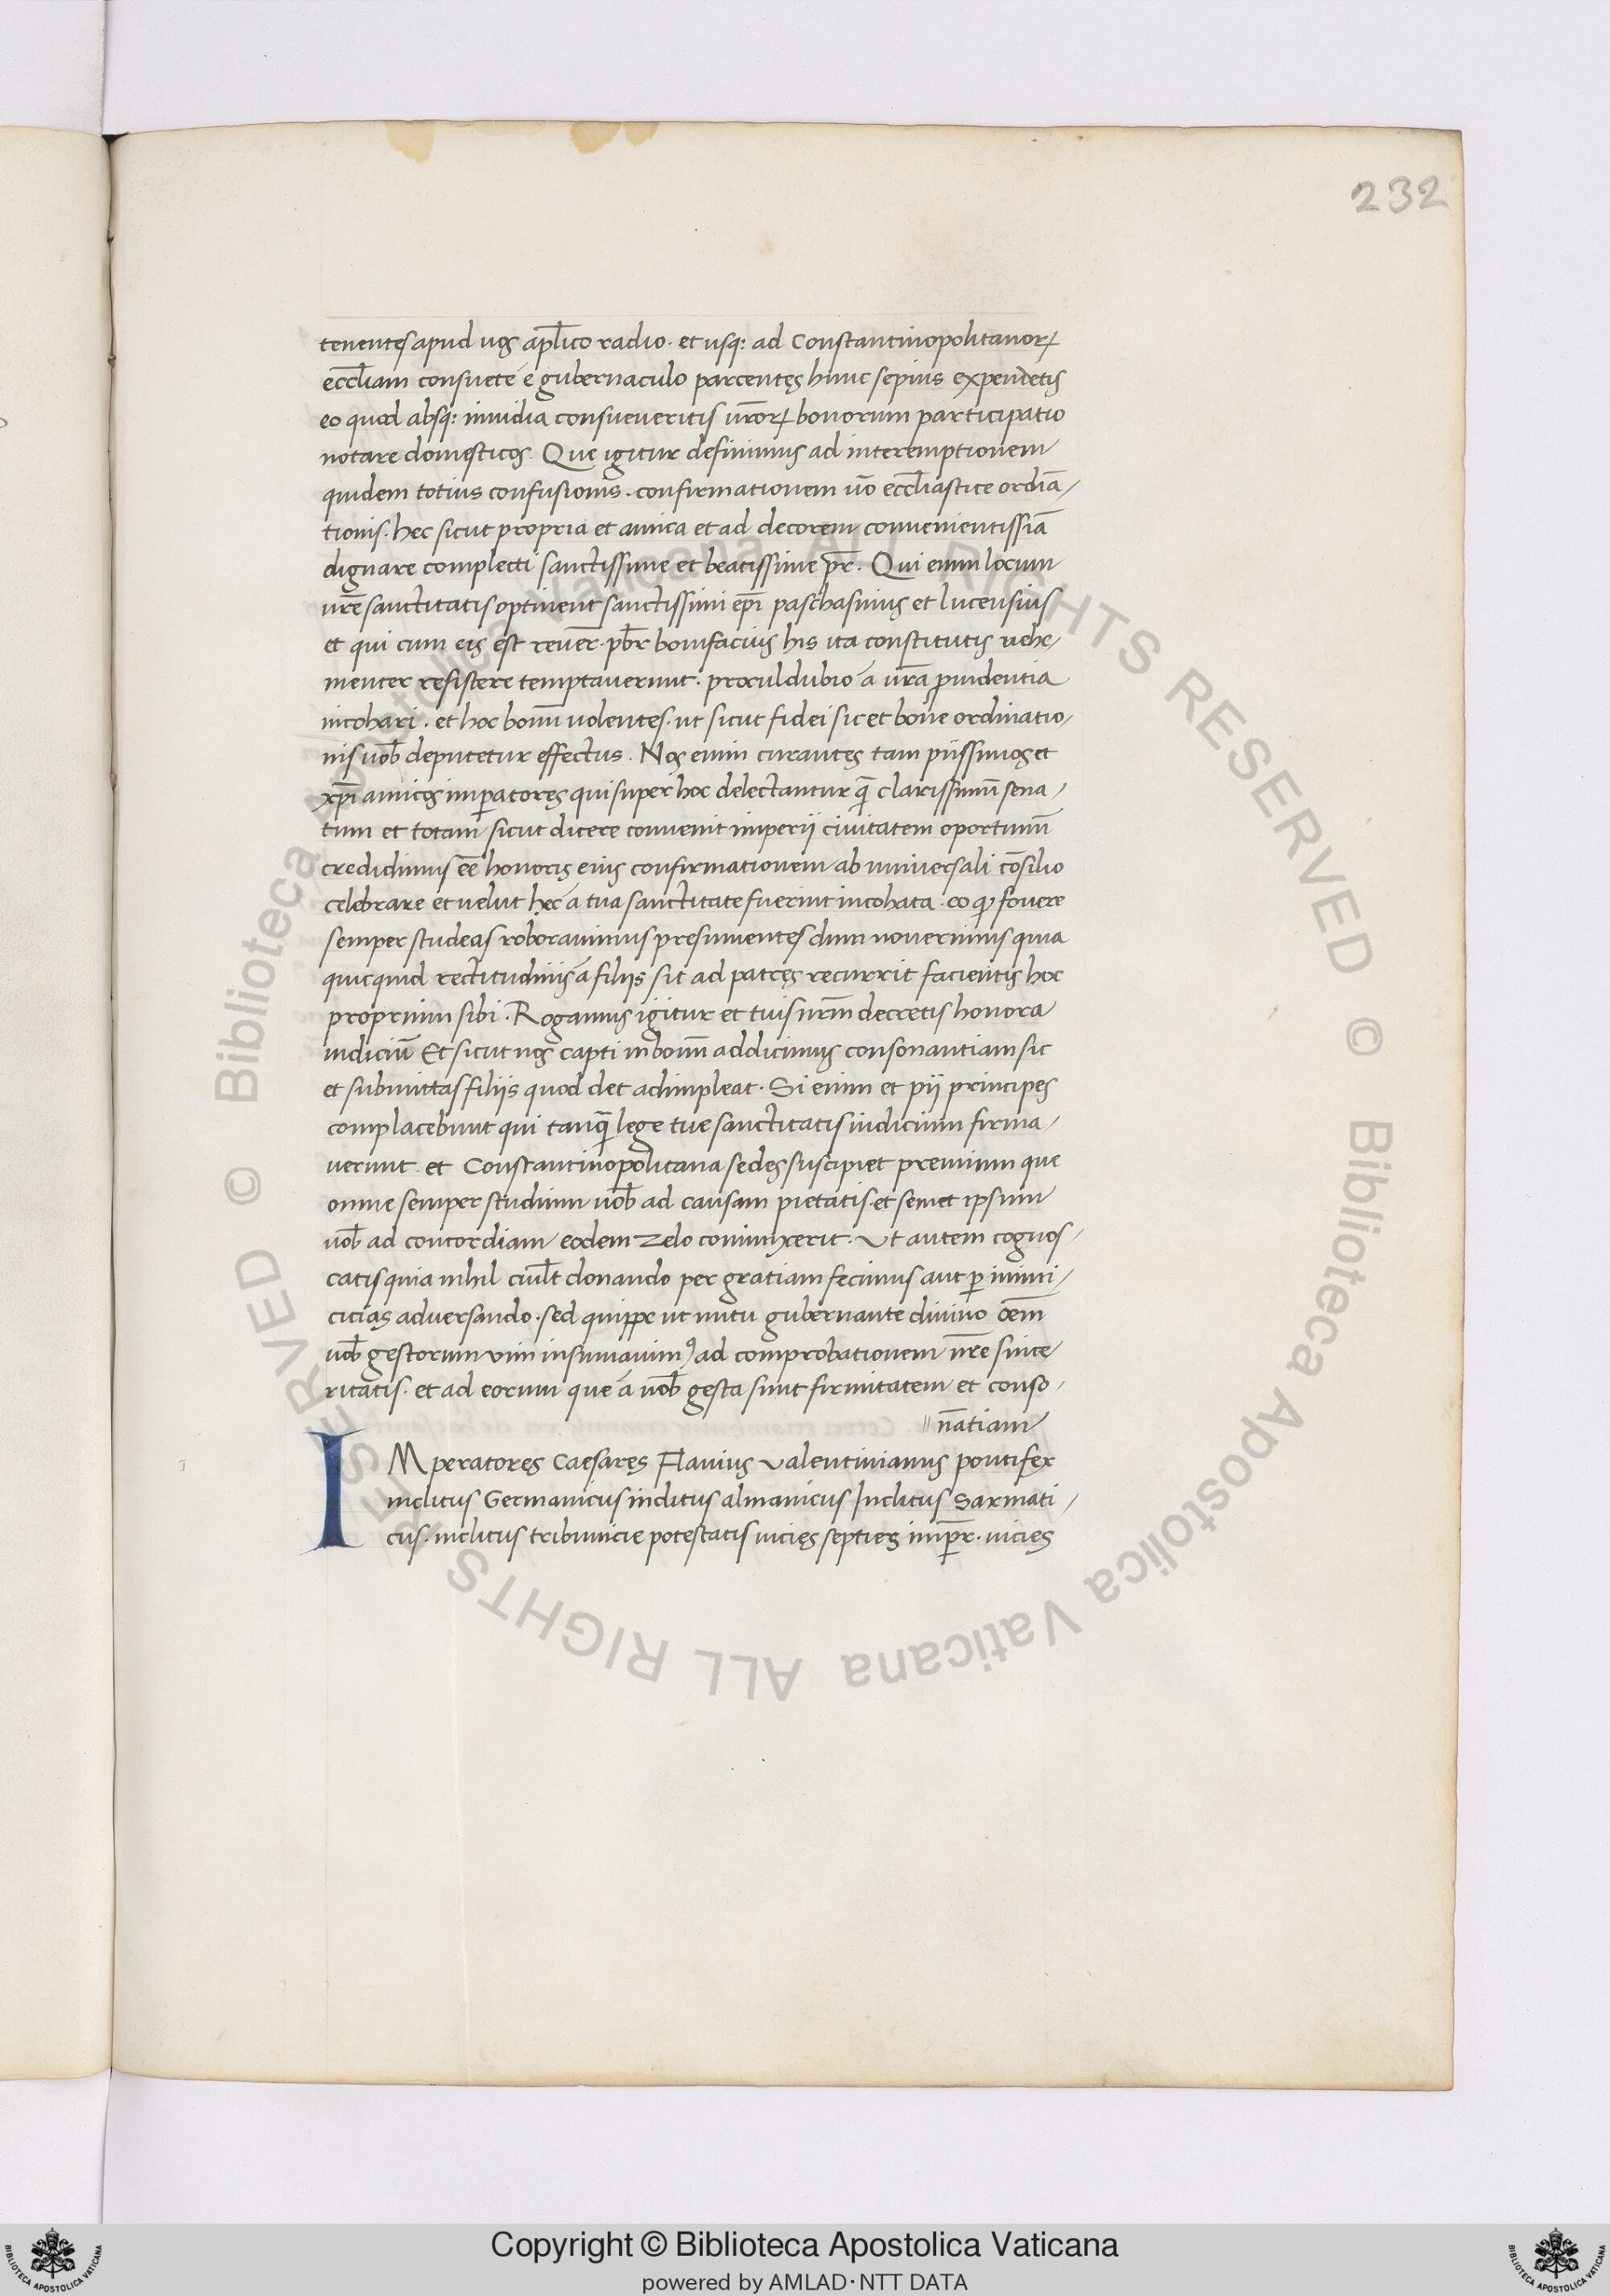 232
tenentes apud uos ap̅lico radio. et usq: ad Constantinopolitanoꝝ
eccl̅iam consuete é gubernaculo parcentes hunc sepius expenetis
eo quod absq: inuidia consueueritis ur̅oꝝ bonorum participatio
notare domesticos. Que igitur definimus ad interemptionem
quidem totius confusionis. confirmationem uo̅ eccl̅iastice ordia̅/
tionis. hec sicut propria et amica et ad decorem conuenientissia̅
dignare complecti sanctissime et beatissime pr̅. Qui enim locum
ur̅e sanctitatis optinent sanctissimi ep̅i paschasinus et lucensius
et qui cum eis est reuer̅. pb̅r bonifacius his ita constitutis uehe/
menter resistere temptauerunt. proculdubio á ur̅a prudentia
incohari. et hoc bonu̅ uolentes. ut sicut fidei sic et bone ordinatio/
nis uob̅ deputetur effectus. Nos enim curantes tam piissimos et
xp̅i amicos imperatores qui super hoc delectantur q̅ clarissimu̅ sena/
tum et totam sicut dicere conuenit imperii ciuitatem oportunu̅
credidimus ee̅ honoris eius confirmationem ab uniuersali co̅silio
celebrare et uelut hec á tua sanctitate fuerint incohata. eo ꝙ fouere
semper studeas roborauimus presumentes dum nouerimus quia
quicquid rectitudinis á filiis sit ad patres recurrit facientis hoc
proprium sibi. Rogamus igitur et tuis nr̅m decretis honora
iudiciu̅ Et sicut nos capti in bonu̅ addicimus consonantiam sic
et submittas filiis quod det adimpleat. Si enim et pii principes
complacebunt qui tanq̅ lege tue sanctitatis iudicium firma/
uerunt et Constantinopolitana sedes suscipiet premium que
omne semper studium uob̅ ad causam pietatis. et semet ipsum
uob̅ ad concordiam eodem zelo coniunxerit. Ut autem cognos/
catis quia nihil ciul̅t donando per gratiam fecimus aut p̲ inimi/
citias aduersando. sed quippe ut nutu gubernante diuino oe̅m
uob̅ gestorum uim insinuauimꝰ ad comprobationem nr̅e since
ritatis. et ad eorum que á uob̅ gesta sunt firmitatem et conso/
// n̅atiam
IMperatores Caesares Flauius Valentinianus pontifex
inclitus Germanicus inclitus almanicus Inclitus Sarmati/
cus. inclitus tribunicie potestatis uicies septies imp̅r. uicies
© Biblioteca Apostolica Vaticana ALL RIGHTS RESERVED © Biblioteca Apostolica Vaticana ALL RIGHTS RESERVED
Copyright © Biblioteca Apostolica Vaticana
powered by AMLAD·NTT DATA
BIBLIOTECA APOSTOLICA VATICANA
BIBLIOTECA APOSTOLICA VATICANA